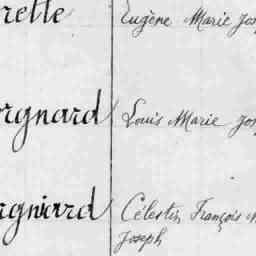 rette Eugène Marie Jos
rgnard Louis Marie Jos
rgniard Célestin François M
Joseph